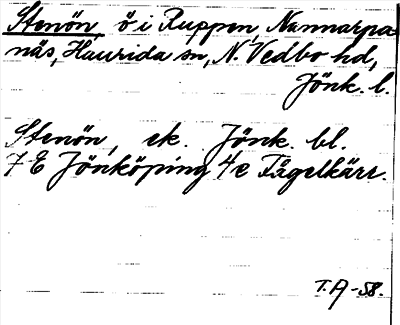 Stenön, ö i Ruppen, Nannarpa-
näs, Haurida sn, N. Vedbo hd,
Jönk. l.
Stenön, ek. Jönk. bl.
7 E Jönköping 4 e Fågelkärr.
T.A-58.